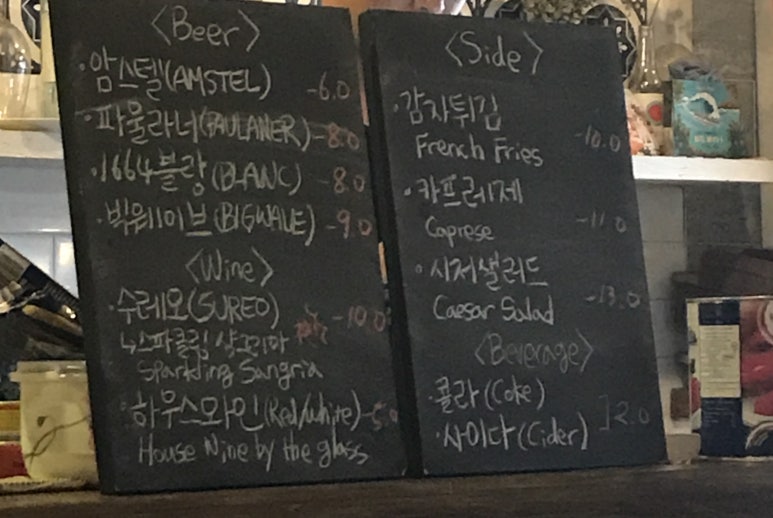 <Beer>
·암스텔(AMSTEL) -6.0
·파울라너(PAULANER) -8.0
·1664블랑(BLANC) -8.0
·빅웨이브(BIGWAVE) -9.0
<Wine>
·수레오(SUREO) -10.0
ㄴ스파클링 샹그리아
Sparkling Sangria
·하우스와인(Red/white) -5.0
House Wine by the glass
<Side>
·감자튀김
French Fries -10.0
·카프레제
Caprese -11.0
·시저샐러드
Caesar Salad -13.0
<Beverage>
·콜라(Coke)
·사이다(Cider) ]2.0